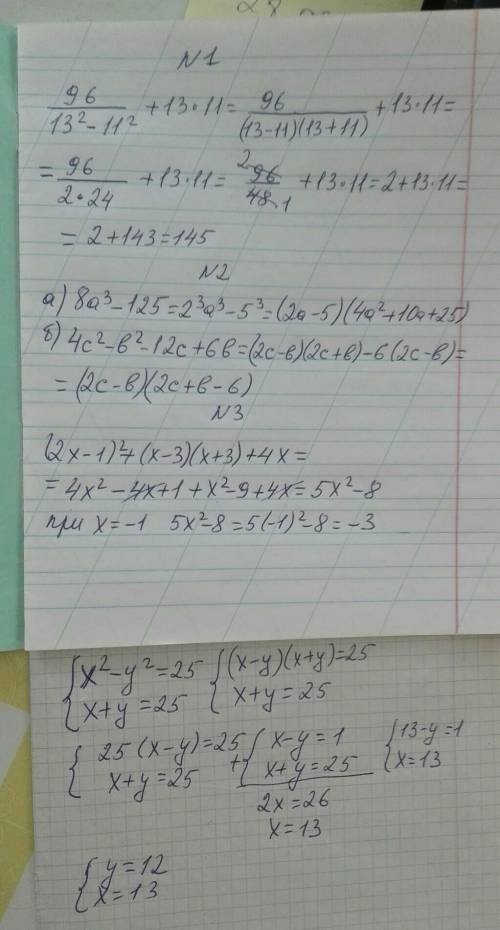 N1
96/(13²-11²) + 13·11 = 96/((13-11)(13+11)) + 13·11 =
= 96/(2·24) + 13·11 = 96/48 2 1 + 13·11 = 2+13·11 =
= 2+143=145
N2
а) 8a³-125=2³a³-5³=(2a-5)(4a²+10a+25)
б) 4c²-b²-12c+6b=(2c-b)(2c+b)-6(2c-b)=
= (2c-b)(2c+b-6)
N3
(2x-1)²+(x-3)(x+3)+4x=
= 4x²-4x+1+x²-9+4x=5x²-8
при x=-1 5x²-8=5(-1)²-8=-3
{ x²-y²=25 { (x-y)(x+y)=25
x+y=25 x+y=25
{ 25(x-y)=25 + { x-y=1 { 13-y=1
x+y=25 x+y=25 x=13
2x=26
x=13
{ y=12
x=13